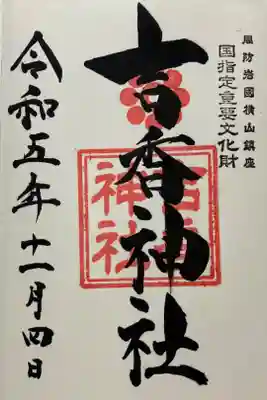 周防岩國横山鎮座
国指定重要文化財
吉香神社
吉香
神社
令和五年十一月四日